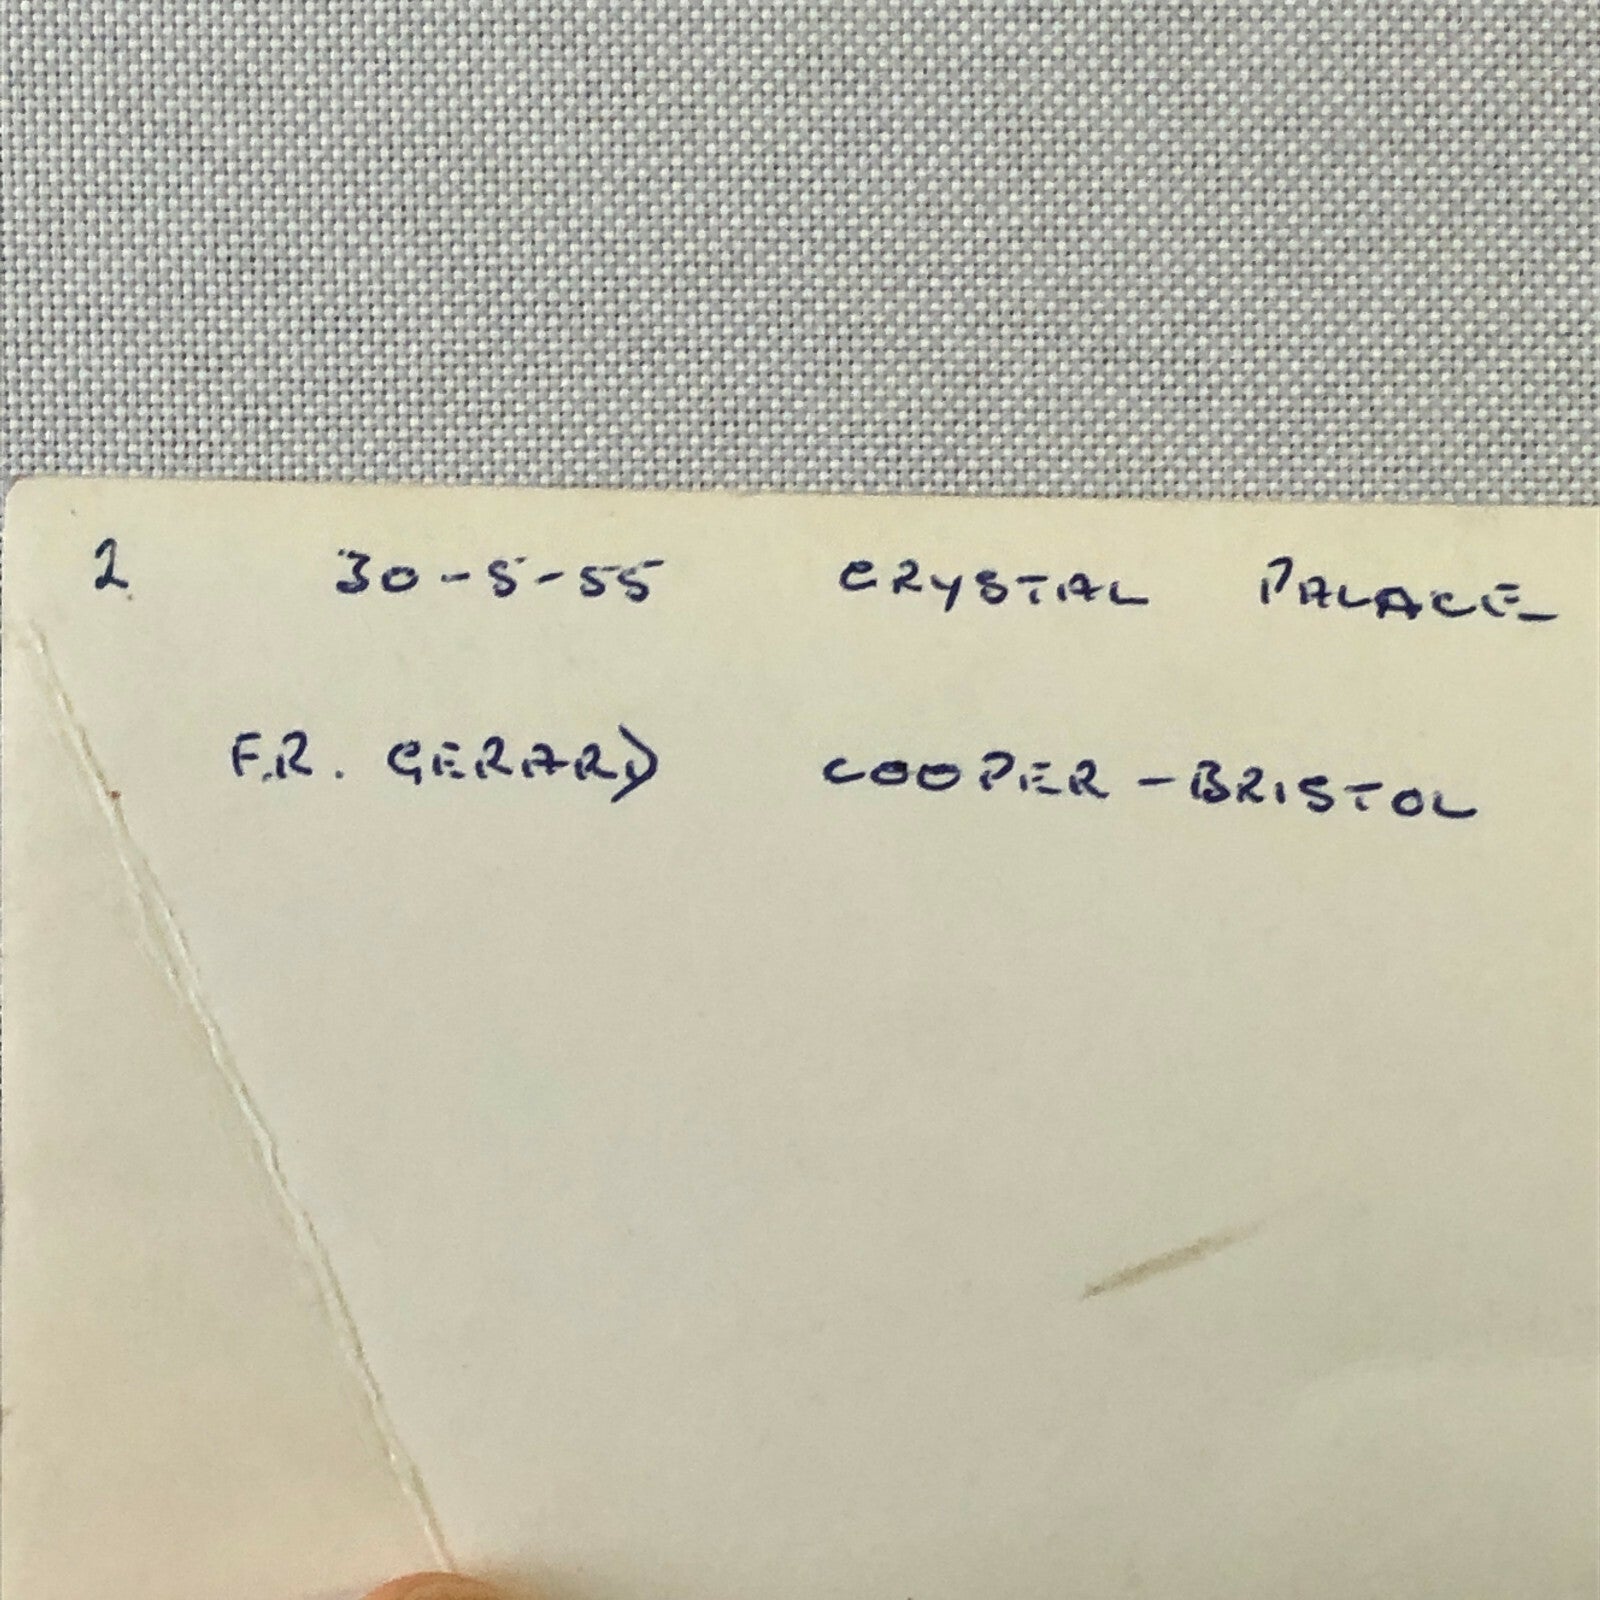 2 30-5-55 CRYSTAL PALACE
F.R. GERARD COOPER-BRISTOL